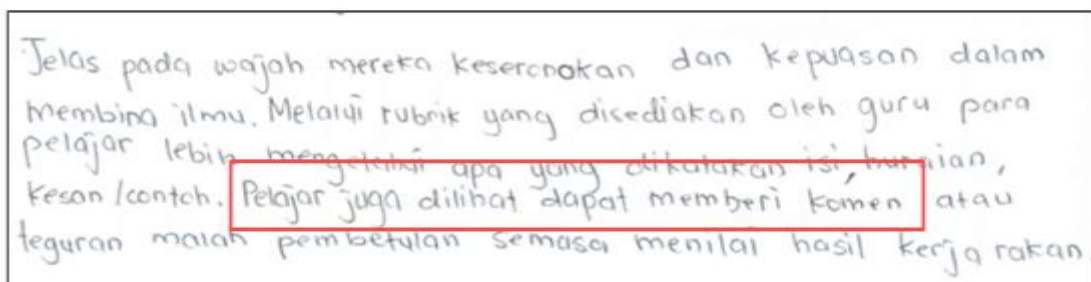 Jelas pada wajah mereka keseronokan dan kepuasan dalam
membina ilmu. Melalui rubrik yang disediakan oleh guru para
pelajar lebih mengetahui apa yang dikatakan isi, huraian,
kesan/contoh. Pelajar juga dilihat dapat memberi komen atau
teguran malah pembetulan semasa menilai hasil kerja rakan.